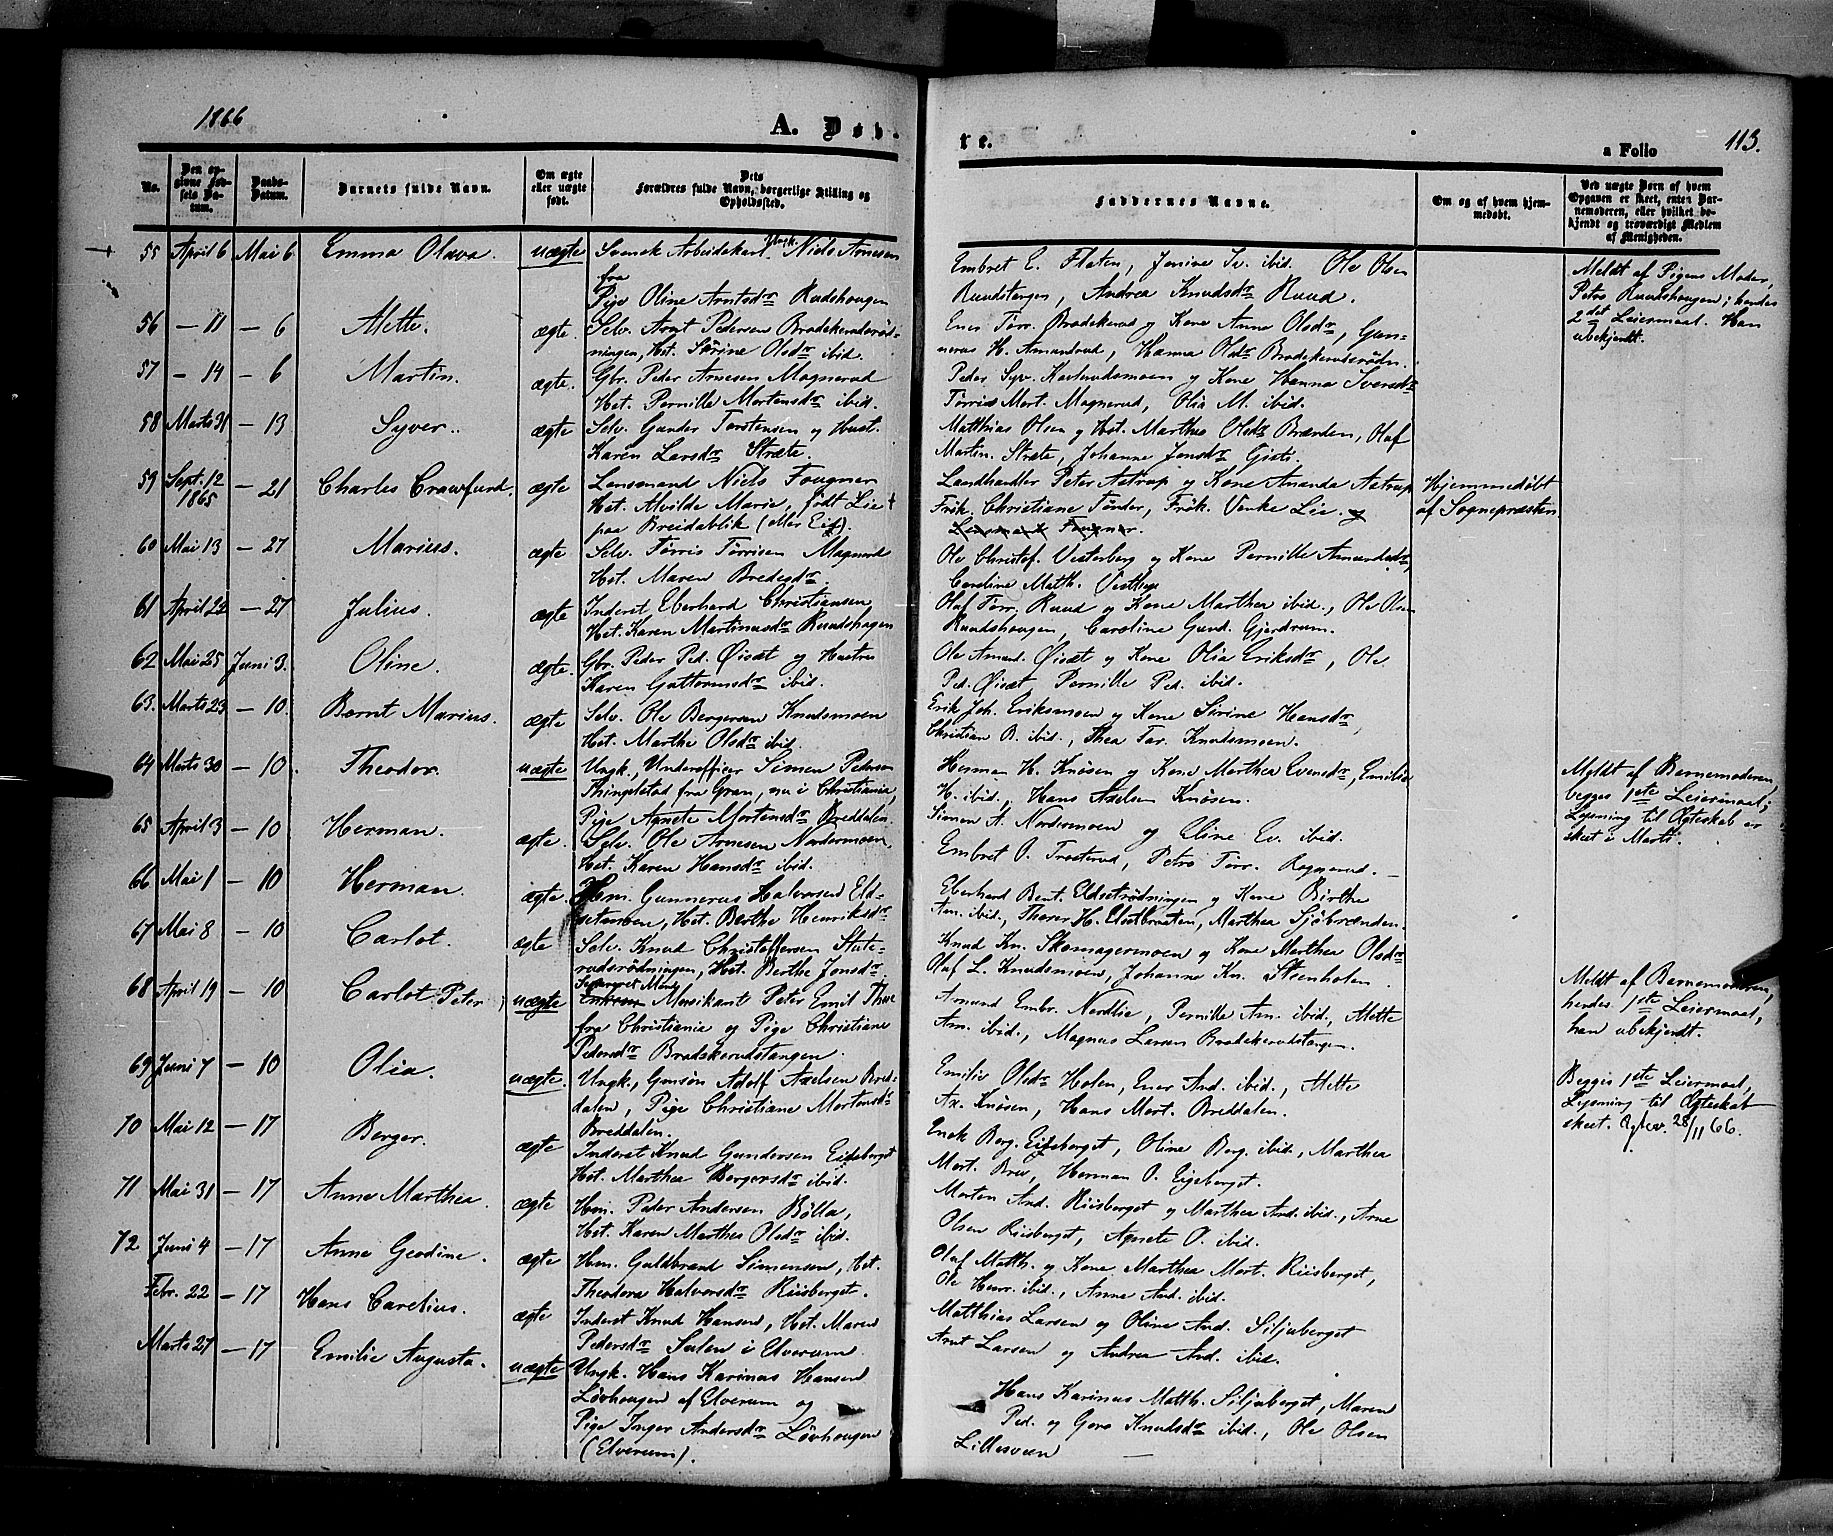 1866
A. Døb-
te.
a Folio
113.
No.
Den opgivne Fødsels Datum.
Daabs-Datum.
Barnets fulde Navn.
Om ægte eller uægte født.
Dets Forældres fulde Navn, borgerlige Stilling og Opholdssted.
Faddernes Navne.
Om og af hvem hjemmedøbt.
Ved uægte Børn af hvem Opgaven er skeet, enten Barnemoderen, eller hvilket bekjendt og troværdigt Medlem af Menigheden.
55 April 6 Mai 6 Emma Olava. uægte Svensk Arbeidskarl Ungk. Niels Arnesen
fra
Pige Oline Arntsdr Rudshougen
Embret E. Flaten, Jenine Iv. ibid. Ole Olsen
Ruudstangen, Andrea Knudsdr Ruud.
Meldt af Pigens Moder,
Petro Ruudshougen; hendes
2det Leiermaal. Han
ubekjendt.
56 – 11 – 6 Mette. ægte. Selv. Arnt Pedersen Bradskerudsrød-
ningen, Hst. Sörine Olsdr ibid.
Ener Törr. Bradskerud og Kone Anne Olsdr, Gun-
nerus H. Amundrud, Hanna Olsdr Bradskerudsrödn.
57 – 14 – 6 Martin. ægte. Gbr. Peder Arnesen Magnerud
Hst. Pernille Mortensdr ibid.
Peder Syv. Karlsrudsmoen og Kone Hanna Iversdr
Törris Mort. Magnerud, Olia M. ibid.
58 Marts 31 – 13 Syver. ægte Selv. Gunder Torstensen og Hust.
Karen Larsdr Stræte.
Matthias Olsen og Hst. Marthe Olsdr Brænden, Olaf
Martin. Stræte, Johanne Jonsdr Gjesti.
59 Sept. 12 1865 – 21 Charles Crawfurd. ægte Lensmand Niels Fougner
Hst. Alvilde Marie, födt Lie
paa Breidablik (eller Eid).
Landhandler Peter Aatrup og Kone Amanda Aatrup
Frök. Christiane Tönder, Frök. Venke Lie. og
Lensmand Fougner.
Hjemmedöbt
af Sognepræsten
60 Mai 13 – 27 Marius. ægte Selv. Törris Törrisen Magnerud
Hst. Maren Bredesdr.
Ole Christof. Vesterberg og Kone Pernille Amundsdr,
Caroline Matth. Vestby
61 April 22 – 27 Julius. ægte Inderst Eberhard Christiansen
Hst. Karen Martinusdr Ruudshagen
Olaf Törr. Ruud og Kone Marthea ibid., Ole Olsen
Ruudshougen, Caroline Gund. Gjerdrum.
62 Mai 25 Juni 3. Oline. ægte. Gbr. Peder Ped. Öisæt og Hustru
Karen Guttormsdr ibid.
Ole Amund. Öisæt og Kone Olia Eriksdr, Ole
Ped. Öisæt Pernille Ped. ibid.
63. Marts 23 – 10. Bernt Marius. ægte Selv. Ole Bergersen Knudsmoen
Hst. Marthe Olsdr ibid.
Erik Joh. Eriksmoen og Kone Sörine Hansdr,
Christian B. ibid., Thea Tar. Knudsmoen.
64 Marts 30 – 10. Theodor. uægte Ungk., Underofficer Simen Pedersen
Thingelstad fra Gran, nu i Christiania,
Pige Agnete Mortensdr Breddalen.
Herman H. Knösen og Kone Marthea Evensdr, Emilie
H. ibid., Hans Axelsen Knösen.
Meldt af Barnemoderen,
begges 1ste Leiermaal;
Lysning til Ægteskab er
skeet i Marts.
65 April 3 – 10 Herman. ægte. Selv. Ole Arnesen Nordermoen
Hst. Karen Hansdr ibid.
Simon A. Nordermoen og Eline Ev. ibid.
Embret O. Trosterud, Petro Törr. Rognerud. –
66 Mai 1 – 10 Herman. ægte. Hm. Gunnerus Halvorsen Eld-
setamoen, Hst. Berthe Henriksdr
Eberhard Bent. Eldsetrödningen og Kone Birthe
Am. ibid, Thorer H. Elsetbraaten, Marthea Sjöbrænden.
67 Mai 8 – 10 Carlot. ægte Selv. Knud Christoffersen Stute-
rudsrödningen, Hst. Berthe Jonsdr.
Knud Kn. Skomagermoen og Kone Marthea Olsdr
Olaf L. Knudsmoen, Johanne Kn. Steenholen.
68 April 19 – 10 Carlot Peter uægte Musikant Peter Emil Thue
fra Christiania og Pige Christiane
Pedersdr Bradskerudstangen.
Amund Embr. Nordlie, Pernille Am. ibid., Mette
Am. ibid., Magnus Larsen Bradskerudstangen.
Meldt af Barnemoderen,
hendes 1ste Leiermaal,
han ubekjendt.
69 Juni 7 – 10 Olia. uægte. Ungk., Gaasön Adolf Axelsen Bred-
dalen, Pige Christiane Mortensdr
Breddalen.
Emilie Olsdr Holen, Ener And. ibid., Mette
Ax. Knösen, Hans Mort. Breddalen.
Begges 1ste Leiermaal,
Lysning til Ægteskab
skeet. Ægtev. 28/11 66.
70 Mai 12 – 17 Berger. ægte Inderst Knud Gundersen Eigeberget
Hst. Marthea Bergersdr ibid.
Enok Berg. Eigeberget, Oline Berg. ibid., Marthea
Mort. Bree, Herman O. Eigeberget.
71 Mai 31 – 17 Anne Marthea. ægte Hm. Peder Andersen Bölla,
Hst. Karen Marthea Olsdr ibid.
Morten And. Riisberget og Marthea And. ibid., Arne
Olsen Riisberget, Agnete O. ibid.
72 Juni 4 – 17 Anne Geodine. ægte Hm. Guldbrand Simensen, Hst.
Theodora Halvorsdr Riisberget.
Olaf Matth. og Kone Marthea Mort. Riisberget,
Ole Henr. ibid., Anne And. ibid.
Febr. 22 – 17 Hans Carelius. ægte Inderst Knud Hansen, Hst. Maren
Pedersdr Sulen i Elverum
Matthias Larsen og Oline And. Siljuberget
Arnt Larsen og Andrea And. ibid.
Marts 27 – 17 Emilie Augusta. uægte Ungk. Hans Karinus Hansen
Lövhougen af Elverum og
Pige Inger Andersdr Lövhougen
(Elverum).
Hans Karinus Matth. Siljuberget, Maren
Ped. og Goro Knudsdr ibid., Ole Olsen
Lillesveen –